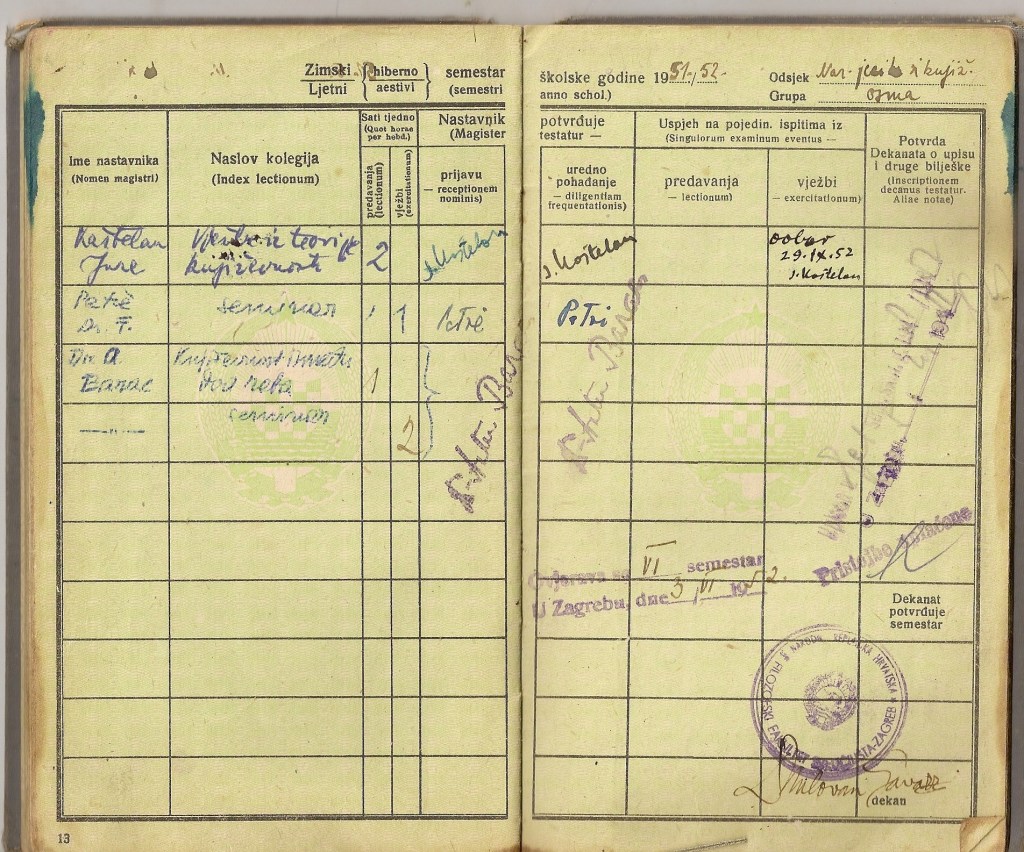 Zimski hiberno semestar
Ljetni aestivi (semestri
školske godine 1951./52. Odsjek Nar. jezik i knjiž.
anno schol.) Grupa osma
Ime nastavnika
(Nomen magistri)
Naslov kolegija
(Index lectionum)
Sati tjedno
(Quot horae
per hebd.)
predavanja
(lectionum)
vježbi
(exercitationum)
Nastavnik
(Magister
prijavu
— receptionem
nominis)
potvrđuje
testatur —
uredno
pohađanje
— diligentiam
frequentationis)
Uspjeh na pojedin. ispitima iz
(Singulorum examinum eventus —
predavanja
— lectionum)
vježbi
— exercitationum)
Potvrda
Dekanata o upisu
i druge bilješke
(Inscriptionem
decanus testatur.
Aliae notae)
Kaštelan
Jure
Vježbe iz teorije
književnosti
2
J. Kaštelan
J. Kaštelan
dobar
29.IX.52
J. Kaštelan
Petrè
Dr. F.
seminar
1
Petrè
Petrè
Dr A
Barac
Književnost između
dva rata
1
seminar
2
Barac
Barac
Ovjerava se VI semestar
U Zagrebu, dne 3 VI 1952.
Pristojbe plaćene
Dekanat
potvrđuje
semestar
NARODNA REPUBLIKA HRVATSKA
FILOZOFSKI FAKULTET SVEUČILIŠTA - ZAGREB
(dekan
13